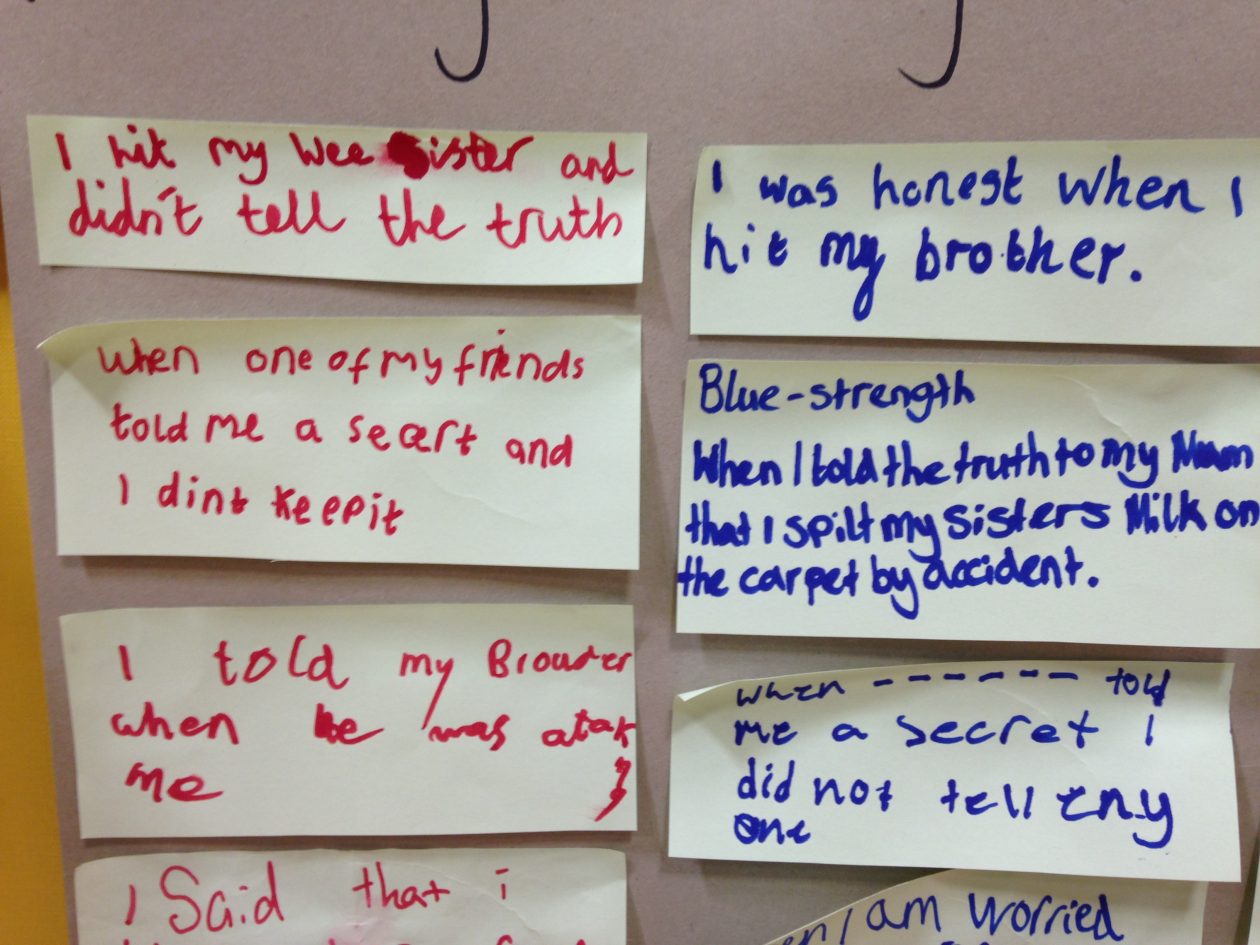 I hit my wee sister and
didn't tell the truth
when one of my friends
told me a secert and
I dint keep it
I told my Brouder
when he was atak
me
I Said that i
I was honest when I
hit my brother.
Blue-strength
When I told the truth to my Mum
that I spilt my sisters Milk on
the carpet by accident.
when ------- told
me a secret I
did not tell eny
one
I am worried